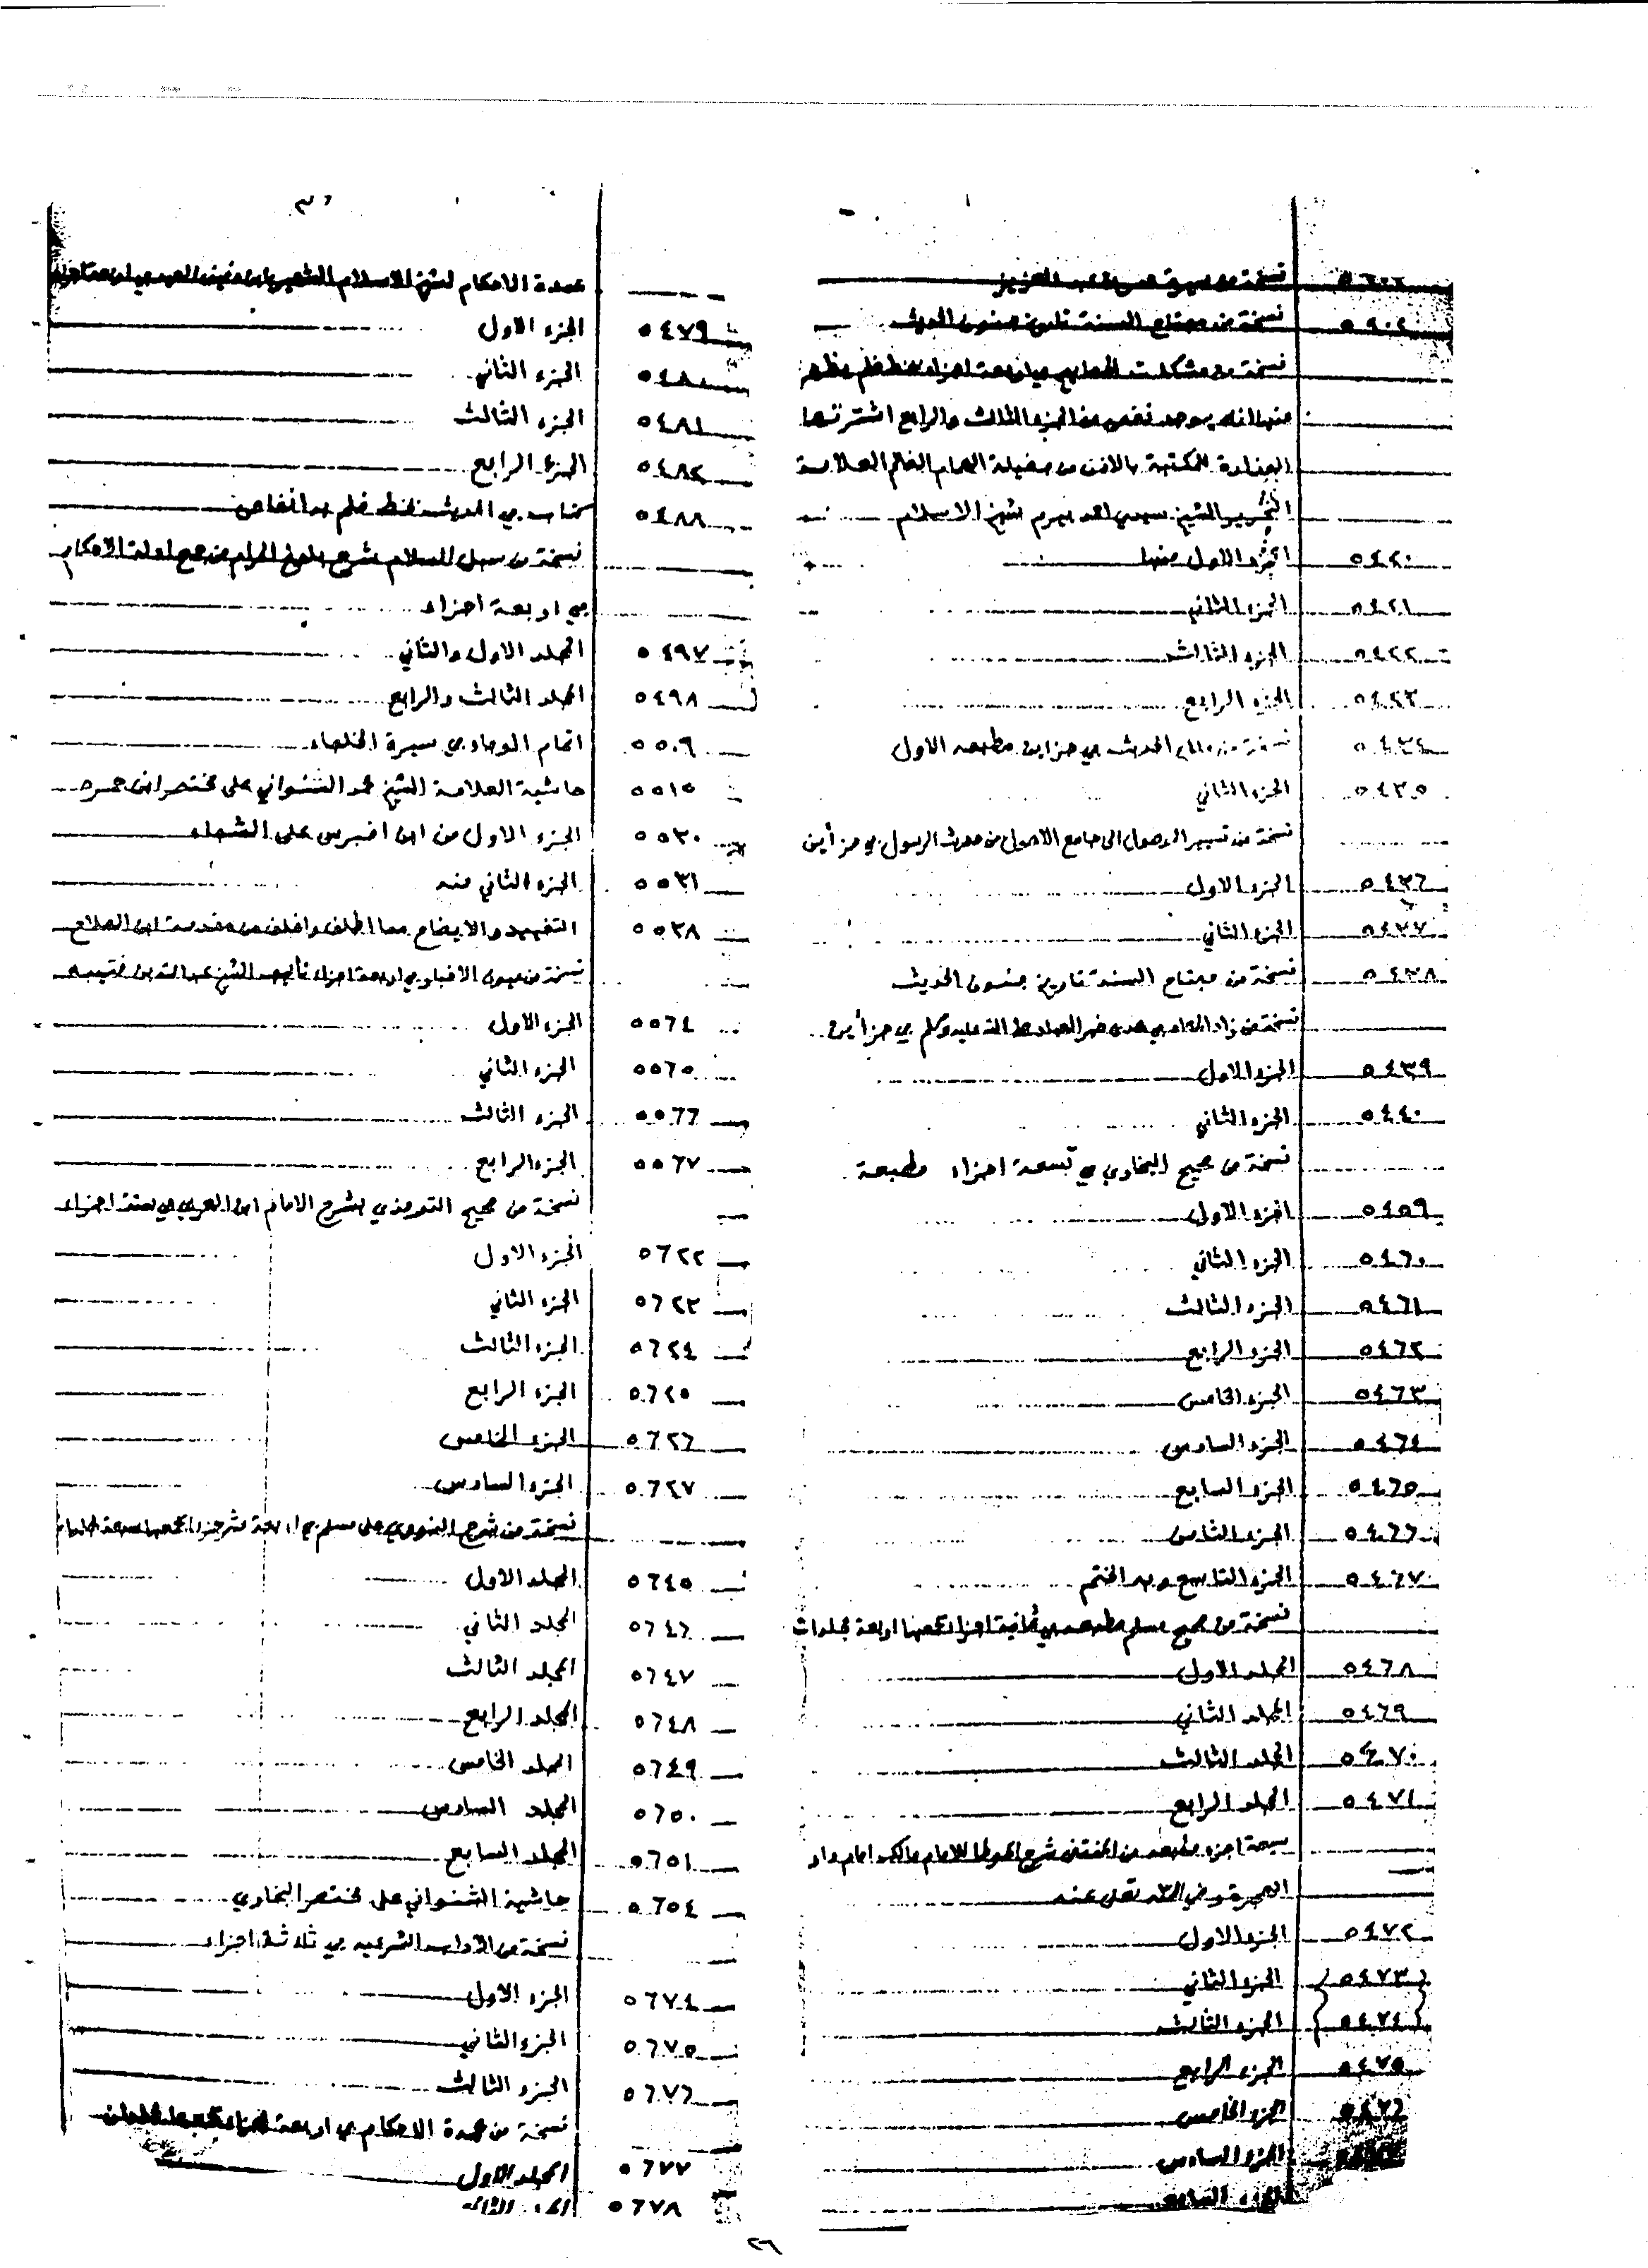 نسخة من سيرة عمر بن عبد العزيز
٥٤٠٤ نسخة من مفتاح السنة تاريخ فنون الحديث
نسخة من مشكلات في اربعة اجزاء بخط قلم يظهر
منها انه يوجد نقص من الجزء الثالث والرابع اشترتها
للمكتبة بالاذن من فضيلة الهمام العالم العلامة
النحرير الشيخ سيدي احمد بيرم شيخ الاسلام
٥٤٢٠ الجزء الاول منها
٥٤٢١ الجزء الثاني
٥٤٢٢ الجزء الثالث
٥٤٢٣ الجزء الرابع
٥٤٣٤ نسخة من الحديث في جزاين مطبعه الاول
٥٤٣٥ الجزء الثاني
نسخة من تيسير الوصول الى جامع الاصول من حديث الرسول في جزأين
٥٤٣٦ الجزء الاول
٥٤٣٧ الجزء الثاني
٥٤٣٨ نسخة من مفتاح السنة تاريخ فنون الحديث
نسخة من زاد المعاد في هدى خير العباد صلى الله عليه وسلم في جزأين
٥٤٣٩ الجزء الاول
٥٤٤٠ الجزء الثاني
نسخة من صحيح البخاري في تسعة اجزاء مطبعة
٥٤٥٩ الجزء الاول
٥٤٦٠ الجزء الثاني
٥٤٦١ الجزء الثالث
٥٤٦٢ الجزء الرابع
٥٤٦٣ الجزء الخامس
٥٤٦٤ الجزء السادس
٥٤٦٥ الجزء السابع
٥٤٦٦ الجزء الثامن
٥٤٦٧ الجزء التاسع وبه الختم
نسخة من صحيح مسلم مطبعه في ثمانية اجزا تجمعها اربعة مجلدات
٥٤٦٨ المجلد الاول
٥٤٦٩ المجلد الثاني
٥٤٧٠ المجلد الثالث
٥٤٧١ المجلد الرابع
سبعة اجزء مطبعه من المنتقى شرح الموطا للامام مالك امام دار
الهجرة رضي الله تعلى عنه
٥٤٧٢ الجزء الاول
٥٤٧٣ الجزء الثاني
٥٤٧٤ الجزء الثالث
٥٤٧٥ الجزء الرابع
٥٤٧٦ الجزء الخامس
الجزء السادس
الجزء السابع
عمدة الاحكام لشيخ الاسلام الشهير بابن دقيق العيد في اربعة اجزاء
٥٤٧٩ الجزء الاول
٥٤٨٠ الجزء الثاني
٥٤٨١ الجزء الثالث
٥٤٨٢ الجزء الرابع
٥٤٨٨ كتاب في الحديث بخط قلم به انقاص
نسخة من سبل السلام شرح بلوغ المرام من جمع ادلة الاحكام
في اربعة اجزاء
٥٤٩٧ المجلد الاول والثاني
٥٤٩٨ المجلد الثالث والرابع
٥٥٠٩ اتمام الوفاء في سيرة الخلفاء
٥٥١٥ حاشية العلامة الشيخ محمد الشنواني على مختصر ابن جمره
٥٥٣٠ الجزء الاول من ابن اقبرس على الشفاء
٥٥٣١ الجزء الثاني منه
٥٥٣٨ التقييد والايضاح مما اطلق واغلق من مقدمة ابن الصلاح
نسخة من عيون الاخبار في اربعة اجزاء تاليف الشيخ عبد الله بن قتيبه
٥٥٦٤ الجزء الاول
٥٥٦٥ الجزء الثاني
٥٥٦٦ الجزء الثالث
٥٥٦٧ الجزء الرابع
نسخة من صحيح الترمذي بشرح الامام ابن العربي في ستة اجزاء
٥٦٢٢ الجزء الاول
٥٦٢٣ الجزء الثاني
٥٦٢٤ الجزء الثالث
٥٦٢٥ الجزء الرابع
٥٦٢٦ الجزء الخامس
٥٦٢٧ الجزء السادس
نسخة من شرح النووي على مسلم في اربعة عشر جزءا تجمعها سبعة مجلدات
٥٦٤٥ المجلد الاول
٥٦٤٦ المجلد الثاني
٥٦٤٧ المجلد الثالث
٥٦٤٨ المجلد الرابع
٥٦٤٩ المجلد الخامس
٥٦٥٠ المجلد السادس
٥٦٥١ المجلد السابع
٥٦٥٤ حاشية الشنواني على مختصر البخاري
نسخة من الآداب الشرعيه في ثلاثة اجزاء
٥٦٧٤ الجزء الاول
٥٦٧٥ الجزء الثاني
٥٦٧٦ الجزء الثالث
نسخة من عمدة الاحكام في اربعة اجزاء
٥٦٧٧ المجلد الاول
٥٦٧٨
٢٦